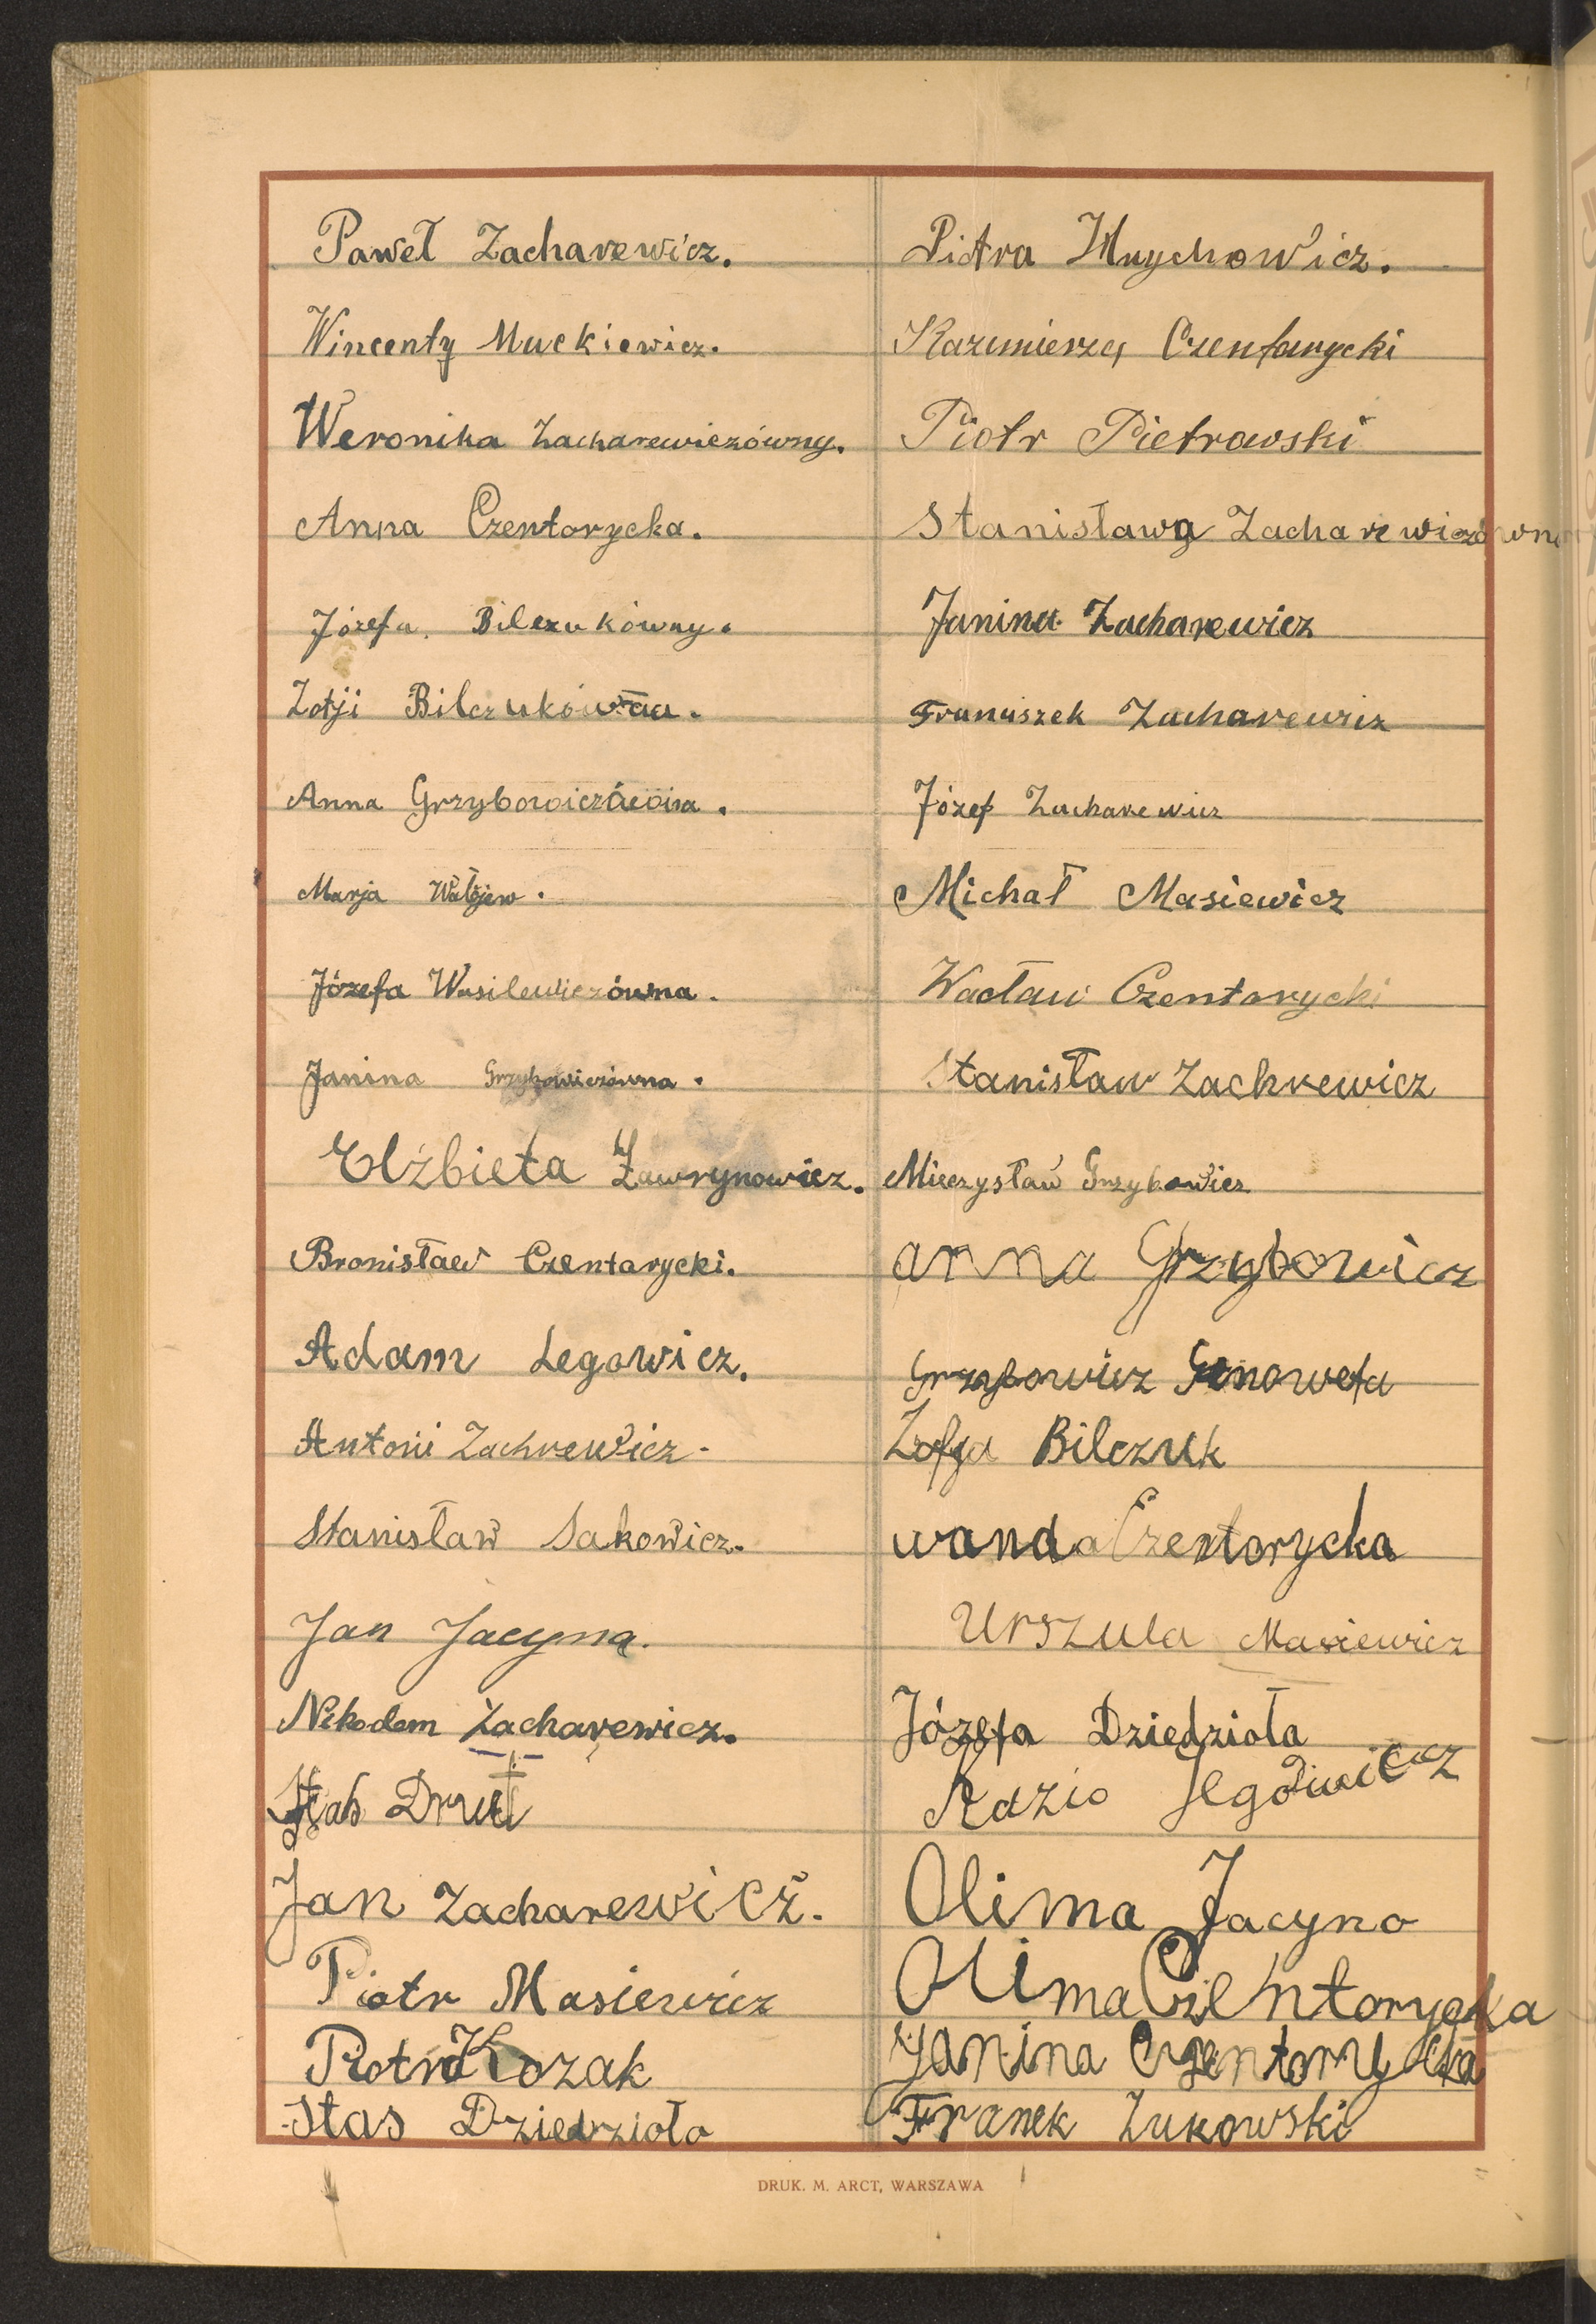 Paweł Zacharewicz.
Wincenty Muckiewicz.
Weronika Zacharewiczówny.
Anna Czentorycka.
Józefa Bilczukówny.
Zofji Bilczukówna.
Anna Grzybowiczówna.
Marja
Józefa Wasilewiczówna.
Janina Grzybowiczówna.
Elżbieta Zawrynowicz.
Bronisław Czentarycki.
Adam Legowicz.
Antoni Zachrewicz.
Stanisław Sakowicz.
Jan Jacyna.
Nikodem Zacharewicz.
Drutt
Jan Zacharewicz.
Piotr Masiewicz
Piotr Kozak
Stas Dziedzioło
Piotra Hnychowicz.
Kazimierz Czentarycki
Piotr Pietrowski
Stanisława Zacharewiczówna
Janina Zacharewicz
Franciszek Zacharewicz
Józef Zacharewicz
Michał Masiewicz
Wacław Czentarycki
Stanisław Zachrewicz
Mieczysław Grzybowicz
anna Grzybowicz
Grzybowicz Genowefa
Zofja Bilczuk
wanda Czentorycka
Urszula Masiewicz
Józefa Dziedzioła
Kazio
Olima Jacyno
Olima Czentorycka
Janina Czentorycka
Franek Zukowski
DRUK. M. ARCT, WARSZAWA